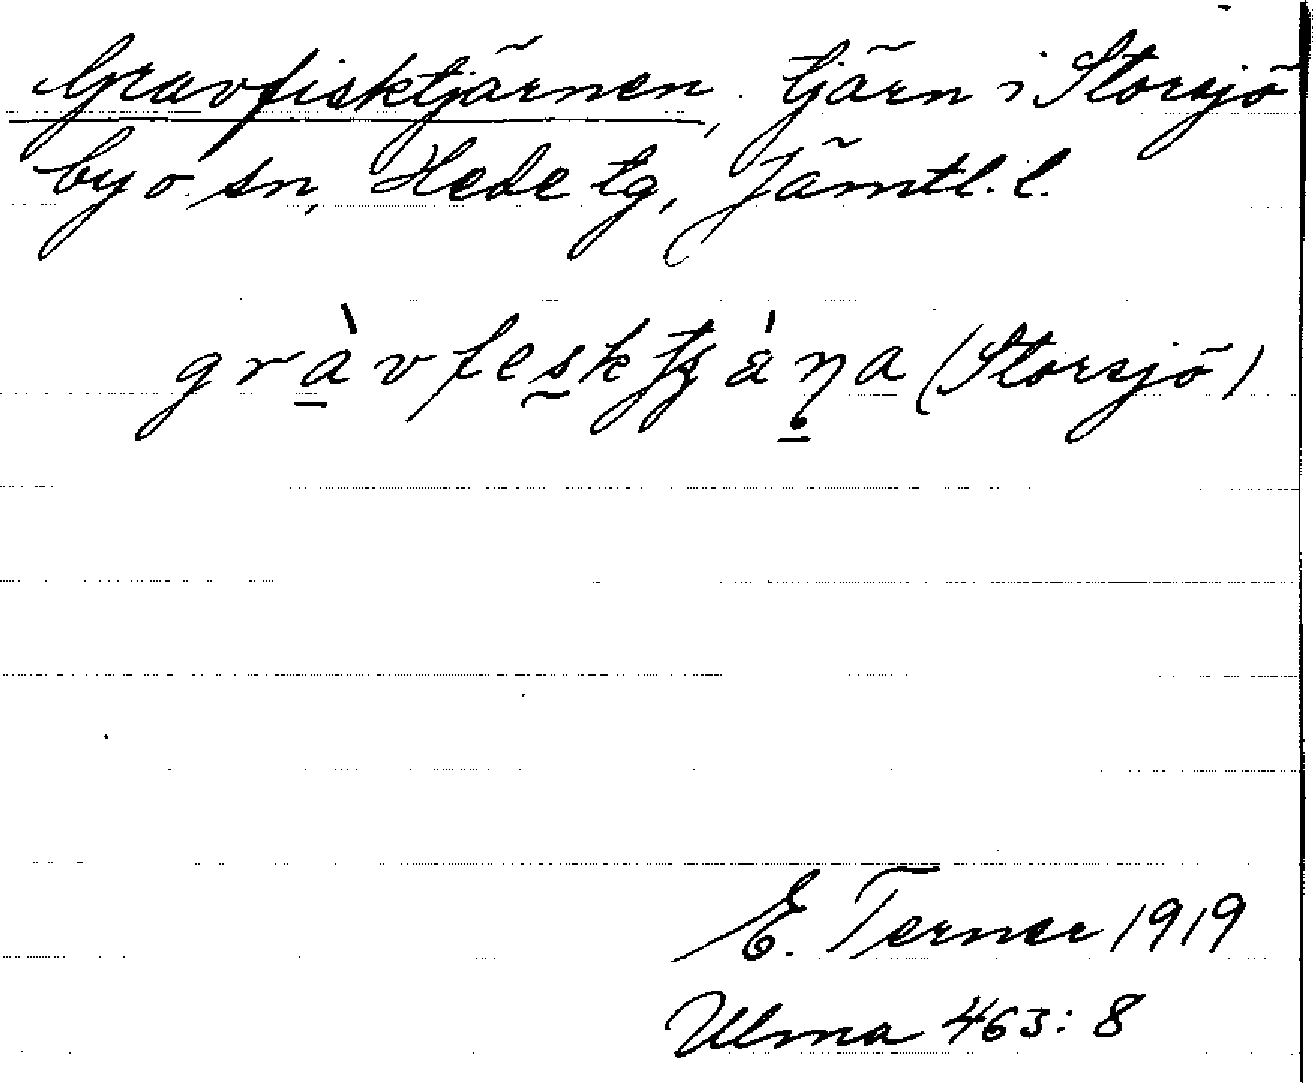 Gravfisktjärnen, tjärn i Storsjö
by o. sn, Hede tg, Jämtl. l.
(Storsjö)
E. Terner 1919
Ulma 463:8